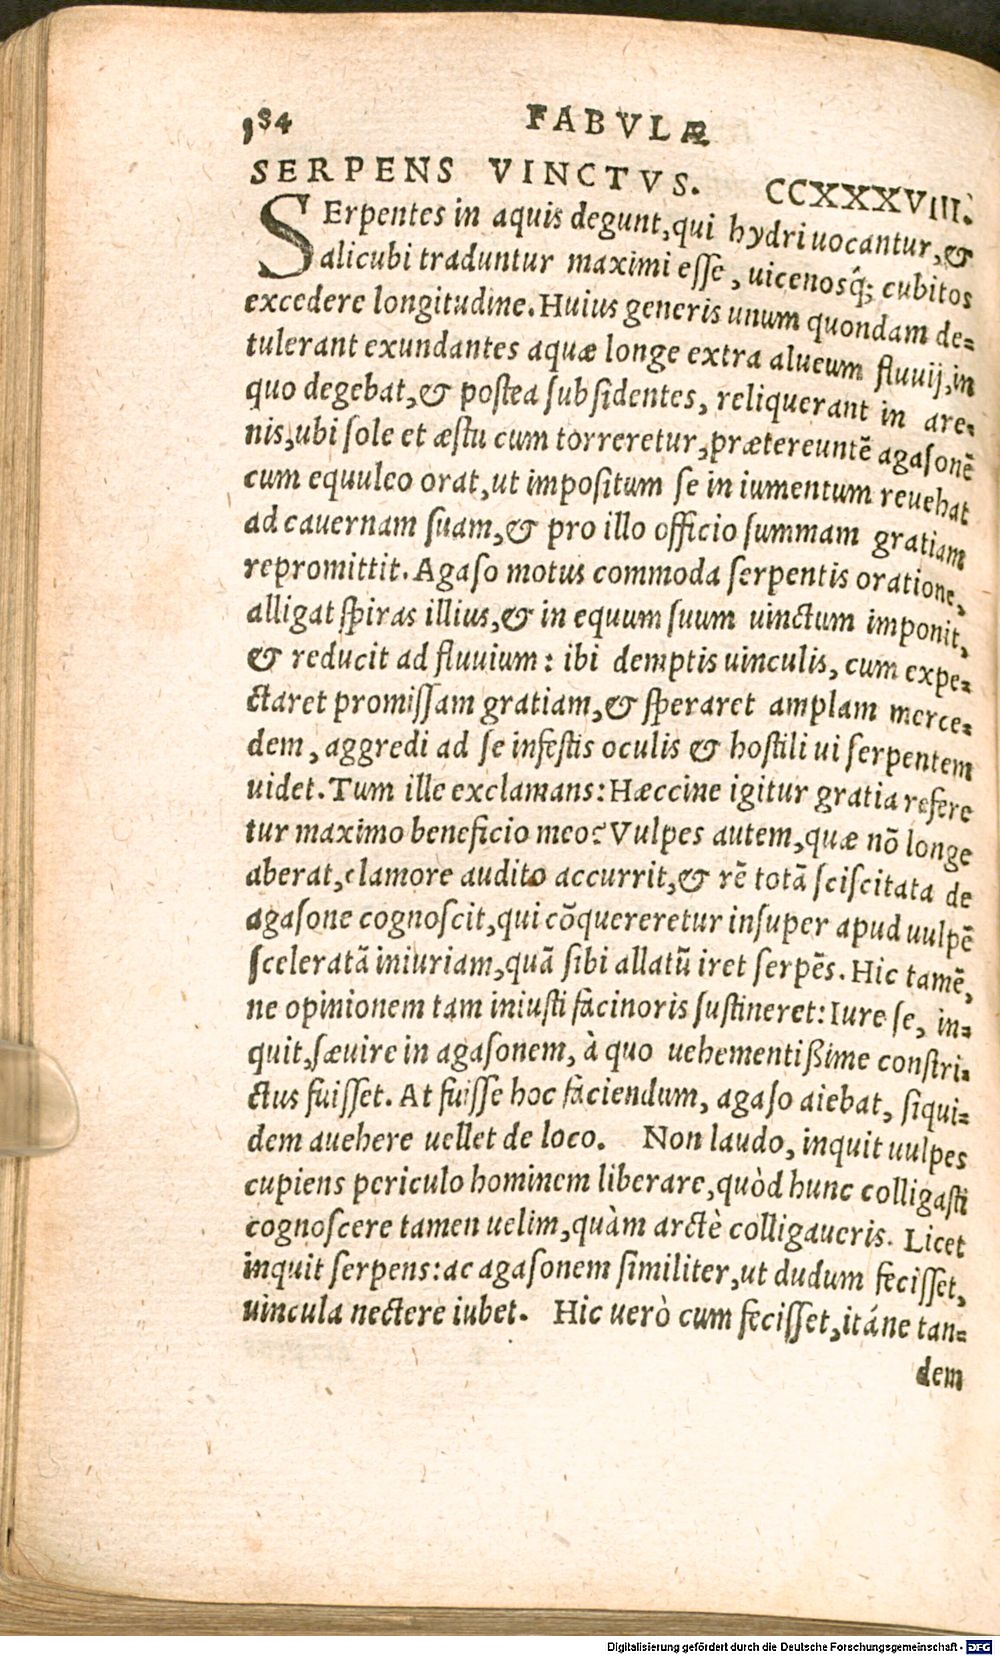 184 FABVLÆ
SERPENS VINCTVS. CCXXXVIII.
SErpentes in aquis degunt, qui hydri uocantur, &
alicubi traduntur maximi esse, uicenosq́; cubitos
excedere longitudine. Huius generis unum quondam de=
tulerant exundantes aquæ longe extra alueum fluuij, in
quo degebat, & postea subsidentes, reliquerant in are=
nis, ubi sole et æstu cum torreretur, prætereuntē agasonē
cum equuleo orat, ut impositum se in iumentum reuehat
ad cauernam suam, & pro illo officio summam gratiam
repromittit. Agaso motus commoda serpentis oratione,
alligat spiras illius, & in equum suum uinctum imponit,
& reducit ad fluuium: ibi demptis uinculis, cum expe=
ctaret promissam gratiam, & speraret amplam merce=
dem, aggredi ad se infestis oculis & hostili ui serpentem
uidet. Tum ille exclamans: Hæccine igitur gratia refere
tur maximo beneficio meo? Vulpes autem, quæ nō longe
aberat, clamore audito accurrit, & rē totā sciscitata de
agasone cognoscit, qui cōquereretur insuper apud uulpē
sceleratā iniuriam, quā sibi allatū iret serpēs. Hic tamē,
ne opinionem tam iniusti facinoris sustineret: Iure se, in=
quit, sæuire in agasonem, à quo uehementißime constri=
ctus fuisset. At fuisse hoc faciendum, agaso aiebat, siqui=
dem auehere uellet de loco. Non laudo, inquit uulpes
cupiens periculo hominem liberare, quòd hunc colligasti
cognoscere tamen uelim, quàm arctè colligaueris. Licet
inquit serpens: ac agasonem similiter, ut dudum fecisset,
uincula nectere iubet. Hic uerò cum fecisset, itáne tan=
dem
Digitalisierung gefördert durch die Deutsche Forschungsgemeinschaft - DFG